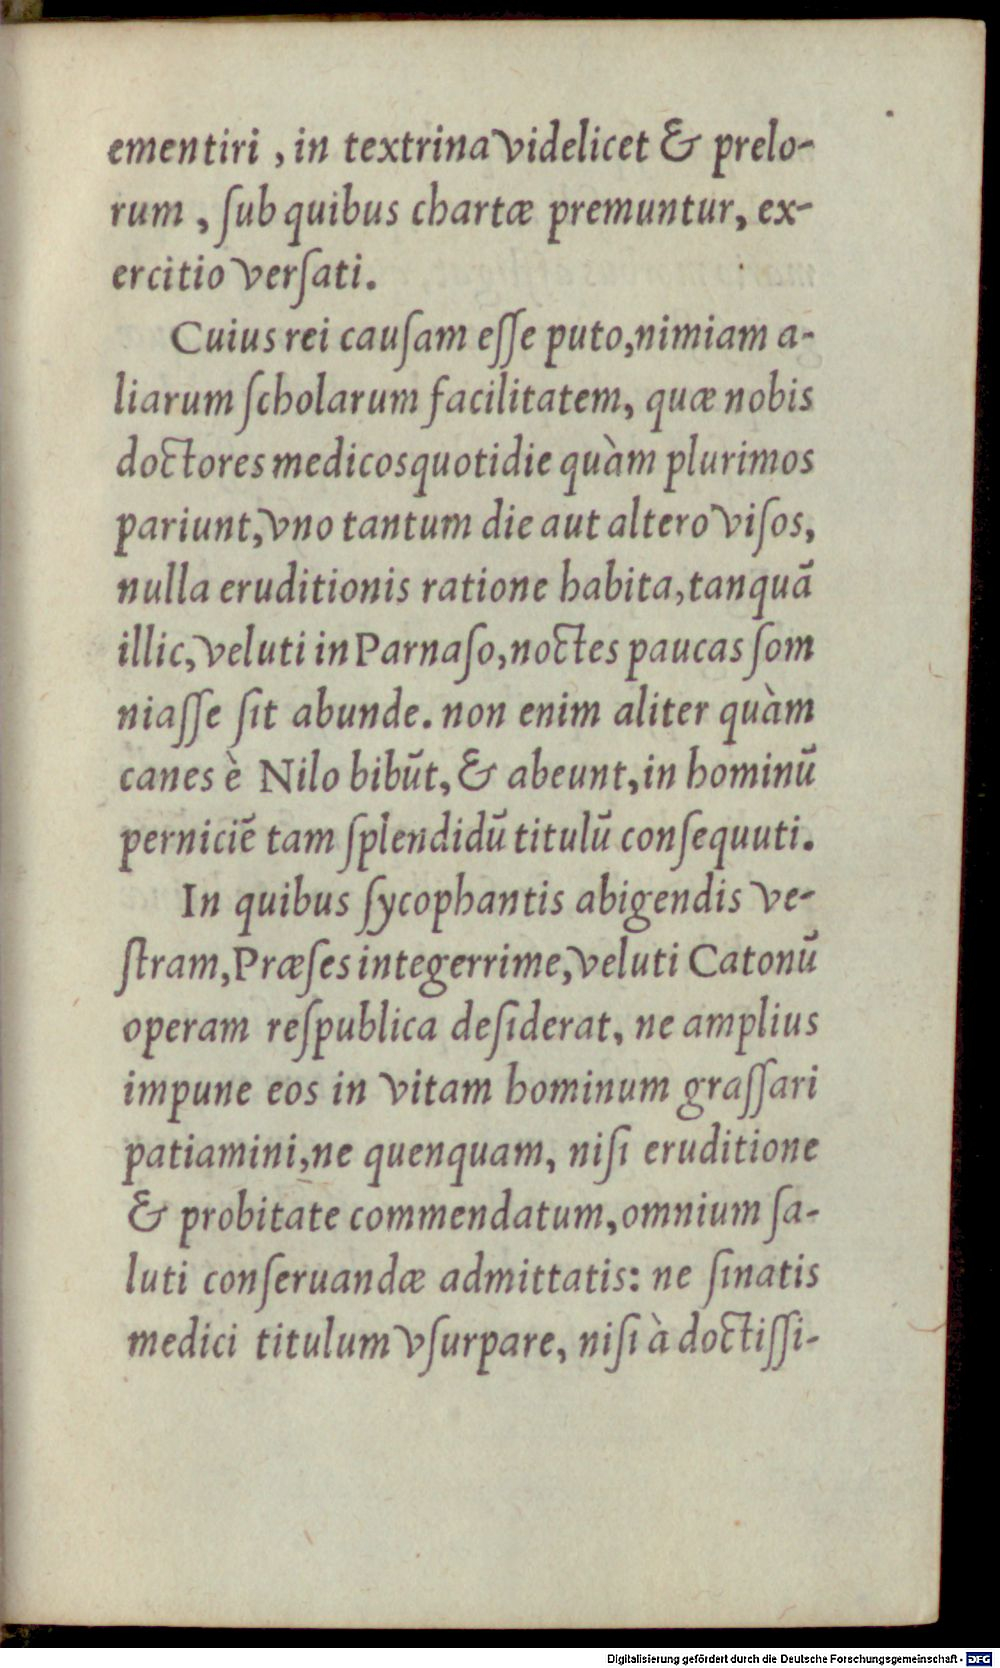 ementiri, in textrina videlicet & prelo-
rum, ſub quibus chartæ premuntur, ex-
ercitio verſati.
Cuius rei cauſam eſſe puto, nimiam a-
liarum ſcholarum facilitatem, quæ nobis
doctores medicos quotidie quàm plurimos
pariunt, vno tantum die aut altero viſos,
nulla eruditionis ratione habita, tanquã
illic, veluti in Parnaſo, noctes paucas ſom
niaſſe ſit abunde. non enim aliter quàm
canes è Nilo bibũt, & abeunt, in hominũ
perniciẽ tam ſplendidũ titulũ conſequuti.
In quibus ſycophantis abigendis ve-
ſtram, Præſes integerrime, veluti Catonũ
operam reſpublica deſiderat, ne amplius
impune eos in vitam hominum graſſari
patiamini, ne quenquam, niſi eruditione
& probitate commendatum, omnium ſa-
luti conſeruandæ admittatis: ne ſinatis
medici titulum vſurpare, niſi à doctiſſi-
Digitalisierung gefördert durch die Deutsche Forschungsgemeinschaft - DFG